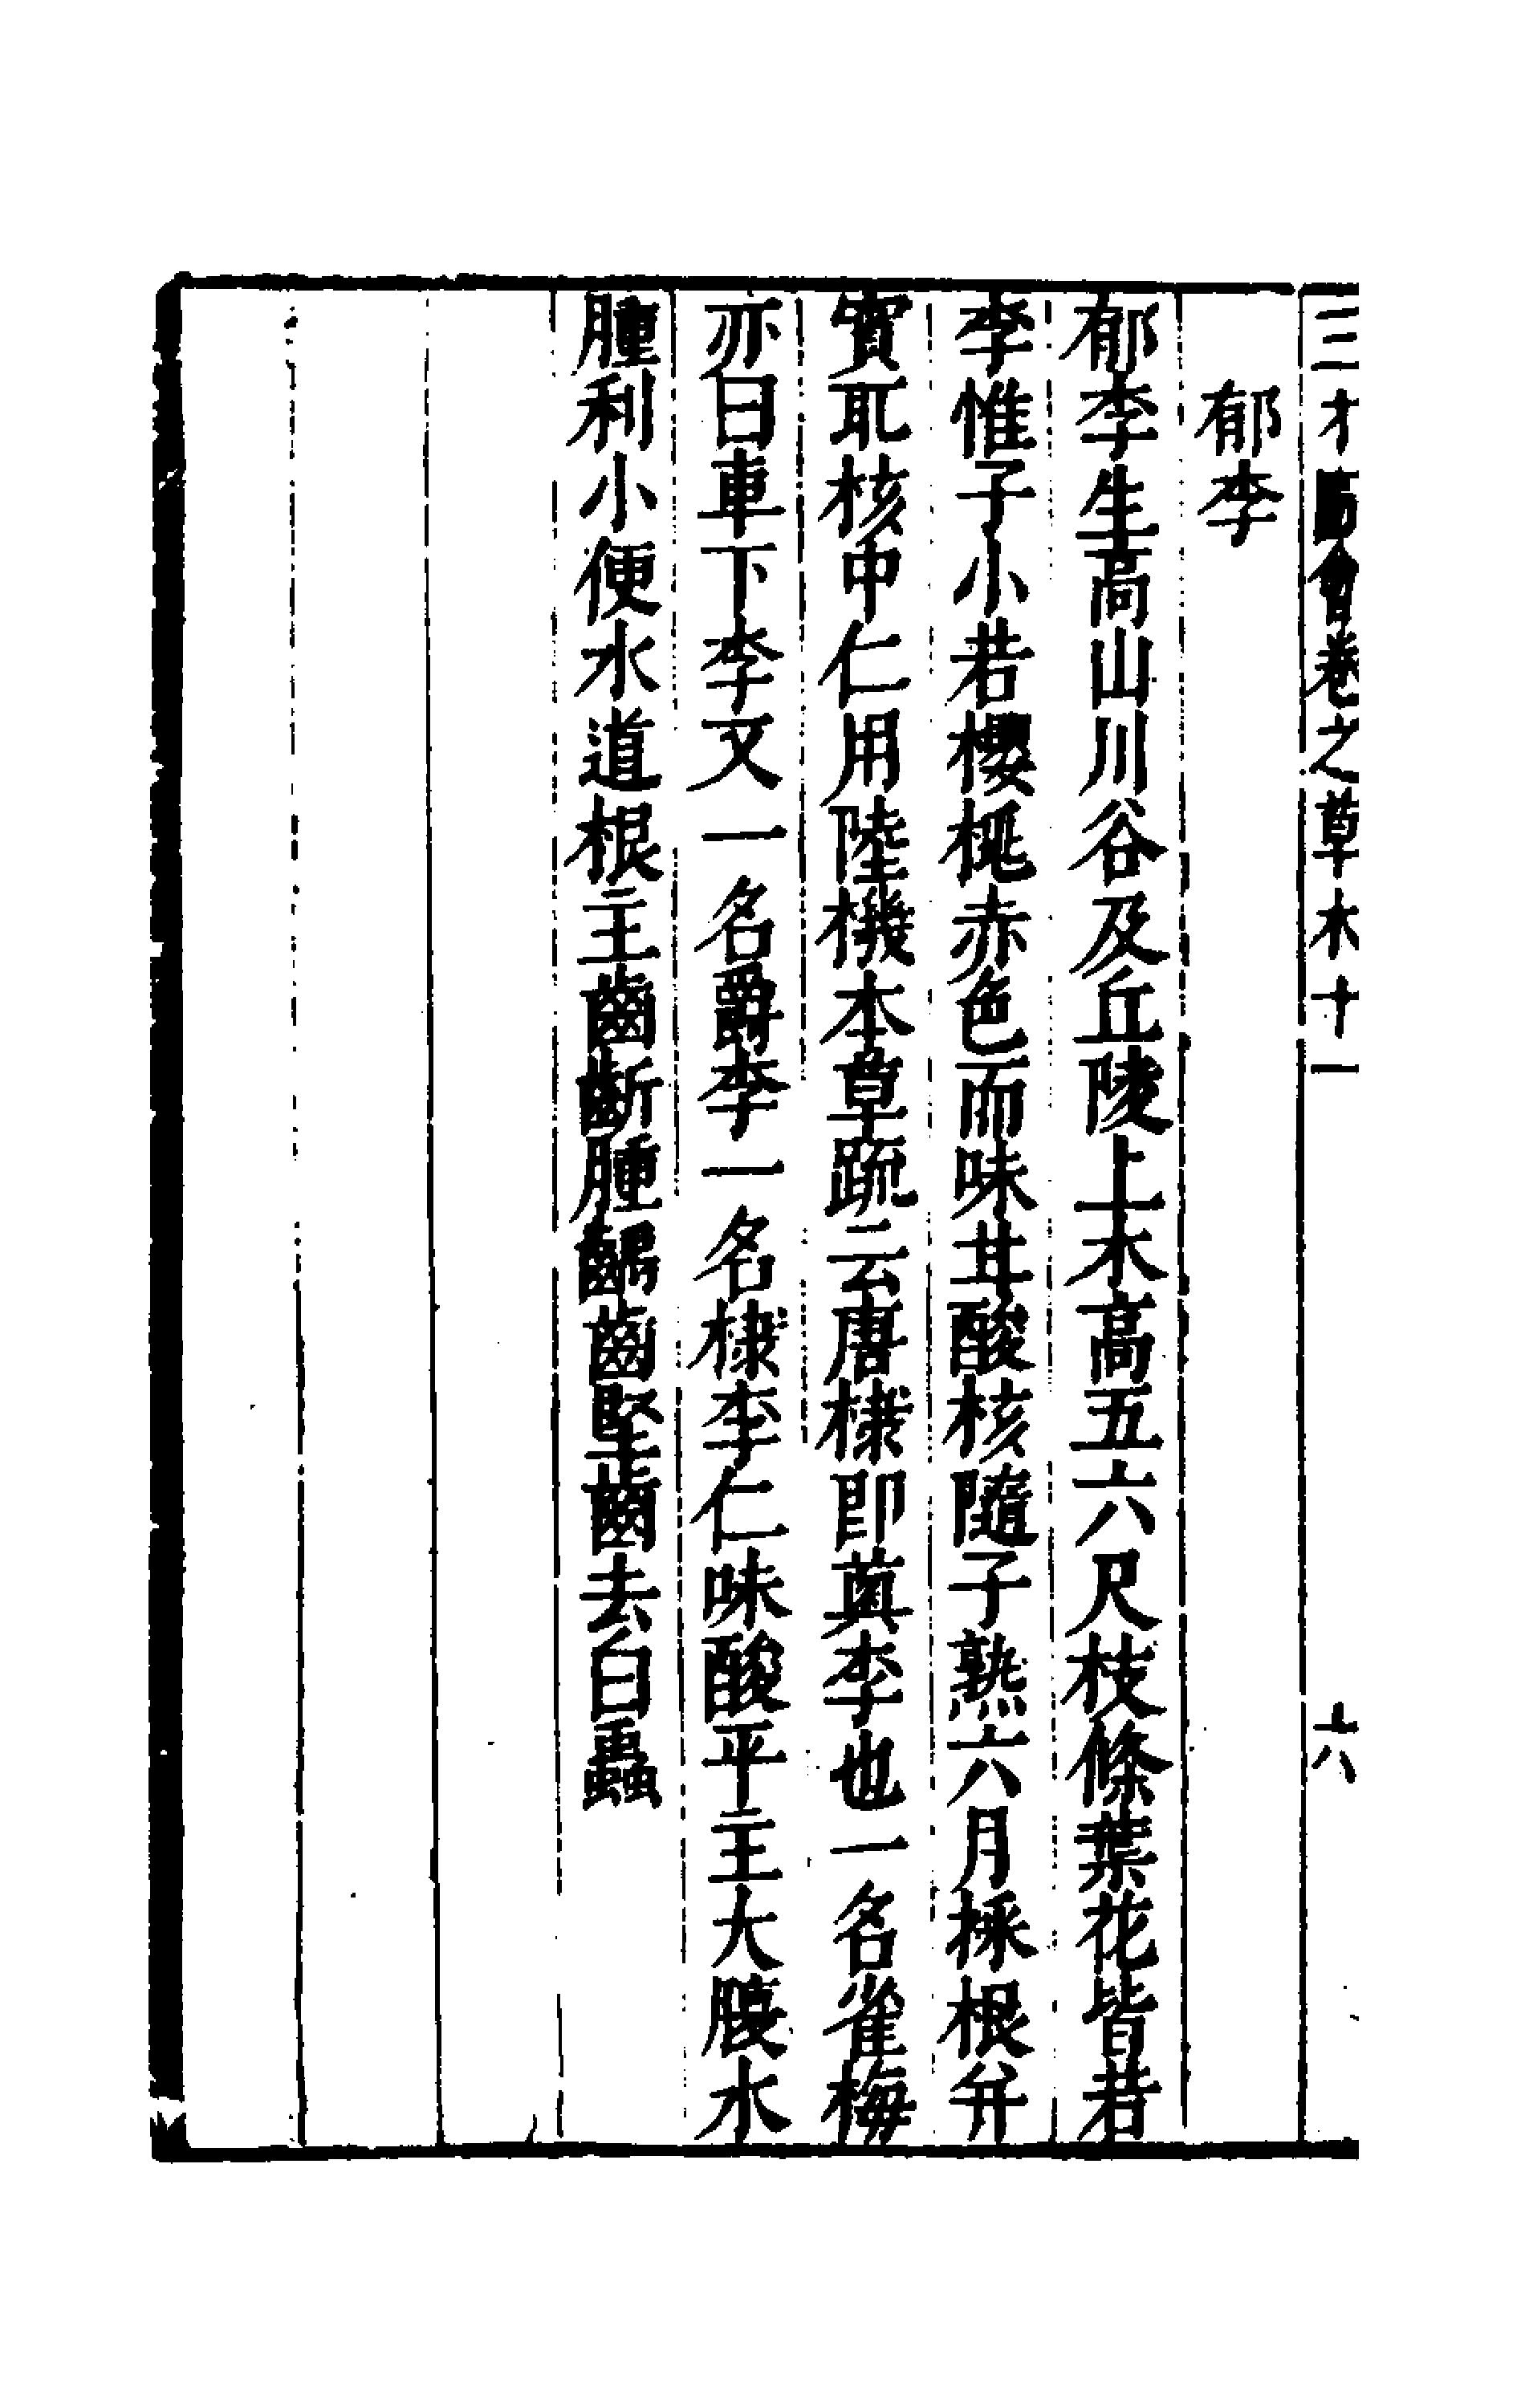 三才圖會卷之草木十一　六
郁李
郁李生高山川谷及丘陵上木高五六尺枝條葉花皆若
李惟子小若櫻桃赤色而味甘酸核隨子熟六月採根并
實取核中仁用陸機本草疏云唐棣即薁李也一名雀梅
亦曰車下李又一名爵李一名棣李仁味酸平主大腹水
腫利小便水道根主齒齗腫齲齒堅齒去白蟲